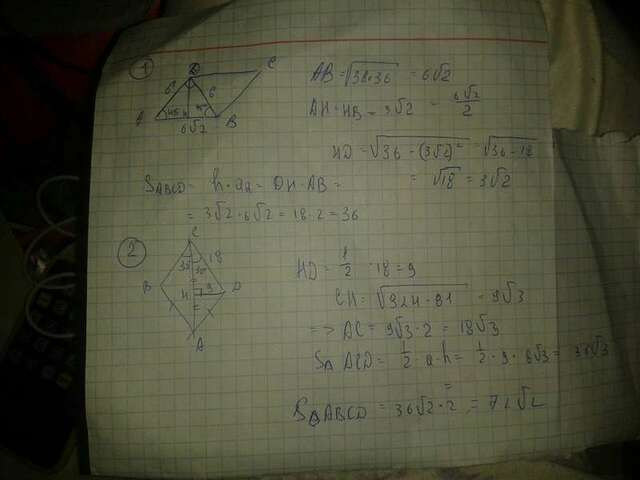 1
D C
6 6
A 45 H 45 B
6√2
AB = √36+36 = 6√2
AH = HB = 3√2 = 6√2/2
HD = √36 - (3√2)² = √36 - 18
= √18 = 3√2
S ABCD = h · a = DH · AB =
= 3√2 · 6√2 = 18 · 2 = 36
2
C
18
30 30
B H 9 D
A
HD = 1/2 · 18 = 9
CH = √324 - 81 = 9√3
=> AC = 9√3 · 2 = 18√3
S ACD = 1/2 · a · h = 1/2 · 9 ·
=
S ABCD = 36√2 · 2 = 72√2